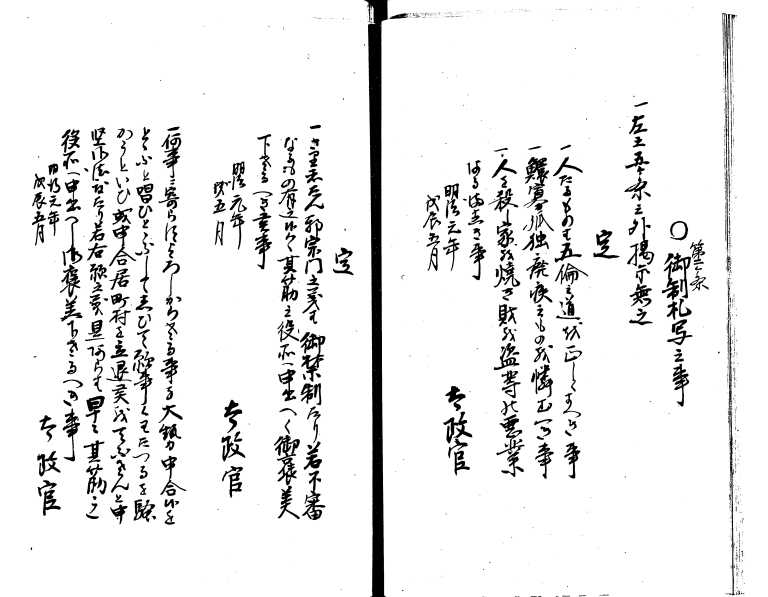 第二条
〇御制札写之事
一左之五条之外掲示無之
定
一人たるもの五倫之道を正しくすへき事
一鰥寡孤独廃疾之ものを憐むへき事
一人を殺し家を焼き財を盗等の悪業
あるましき事
明治元年
戊辰五月
太政官
定
一きりしたん邪宗門之義は御禁制たり若不審
なるもの有之候ハヽ其筋之役所へ申出へく御褒美
下さるへき事
明治元年
戊五月
太政官
一何事ニ寄らすよろしからさる事ニ大勢申合候を
ととふと唱ひととふしてしひて願事くわたつるを
かうそといひ或申合居町村を立退
堅御法度たり若右類之義是あらは早々其筋之
役所へ申出へし御褒美下さるへき事
明治元年
戊辰五月
太政官